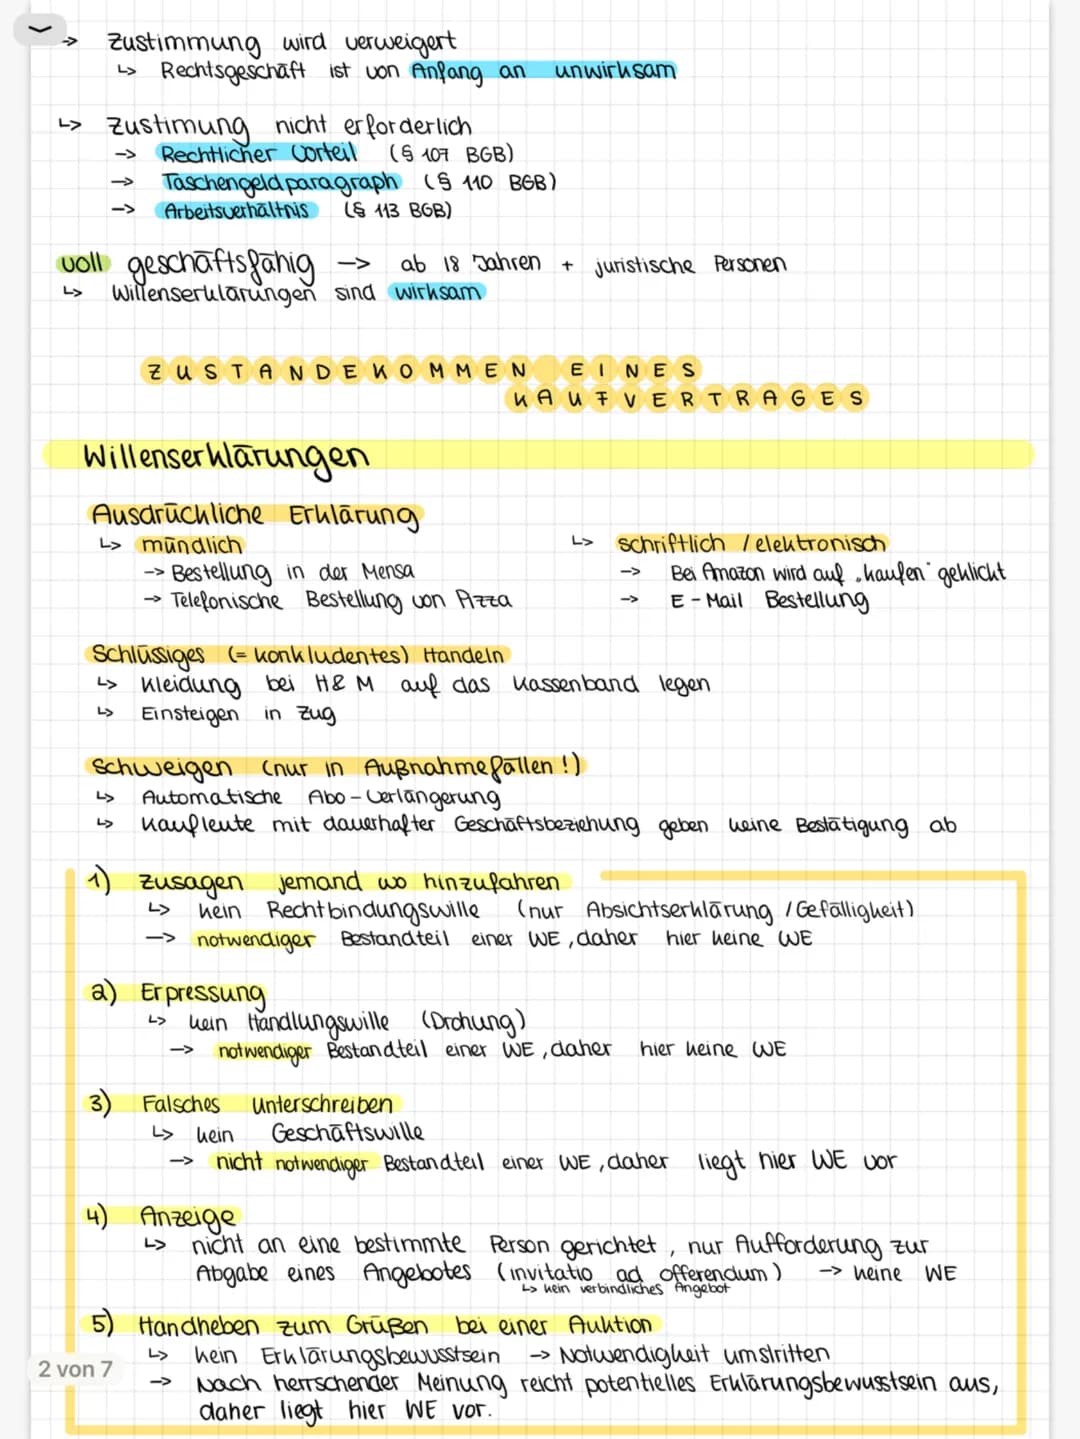 → Zustimmung wird verweigert
↳ Rechtsgeschäft ist von Anfang an unwirksam
↳ Zustimung nicht erforderlich
→ Rechtlicher Vorteil (§ 107 BGB)
→ Taschengeldparagraph (§ 110 BGB)
→ Arbeitsverhältnis (§ 113 BGB)
voll geschäftsfähig → ab 18 Jahren + juristische Personen
↳ Willenserklärungen sind wirksam
ZUSTANDEKOMMEN EINES
KAUFVERTRAGES
Willenserklärungen
Ausdrückliche Erklärung
↳ mündlich
→ Bestellung in der Mensa
→ Telefonische Bestellung von Pizza
↳ schriftlich / elektronisch
→ Bei Amazon wird auf „kaufen" geklickt
→ E-Mail Bestellung
Schlüssiges (= konkludentes) Handeln
↳ Kleidung bei H&M auf das Kassenband legen
↳ Einsteigen in Zug
Schweigen (nur in Außnahmefällen!)
↳ Automatische Abo-Verlängerung
↳ Kaufleute mit dauerhafter Geschäftsbeziehung geben keine Bestätigung ab
1) Zusagen jemand wo hinzufahren
↳ kein Rechtbindungswille (nur Absichtserklärung / Gefälligkeit)
→ notwendiger Bestandteil einer WE, daher hier keine WE
2) Erpressung
↳ kein Handlungswille (Drohung)
→ notwendiger Bestandteil einer WE, daher hier keine WE
3) Falsches unterschreiben
↳ kein Geschäftswille
→ nicht notwendiger Bestandteil einer WE, daher liegt hier WE vor
4) Anzeige
↳ nicht an eine bestimmte Person gerichtet, nur Aufforderung zur
Abgabe eines Angebotes (invitatio ad offerendum) → keine WE
↳ kein verbindliches Angebot
5) Handheben zum Grüßen bei einer Auktion
↳ kein Erklärungsbewusstsein → Notwendigkeit umstritten
→ Nach herrschender Meinung reicht potentielles Erklärungsbewusstsein aus,
daher liegt hier WE vor.
2 von 7